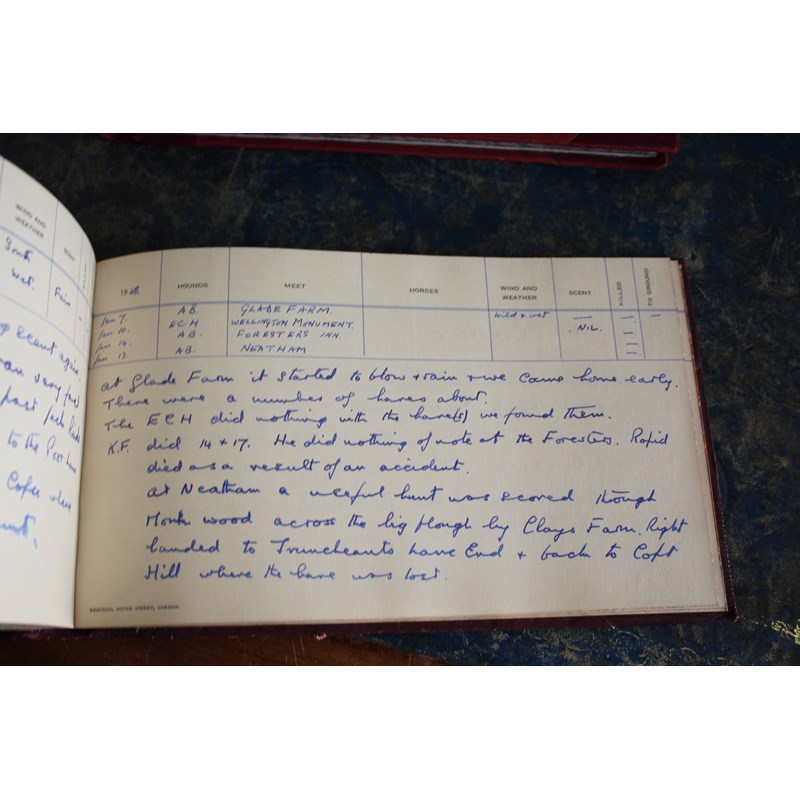 WIND AND
WEATHER
South
Wet.
Fair
scent again
very fast
Copse where
HOUNDS
MEET
HORSES
WIND AND
WEATHER
SCENT
KILLED
TO GROUND
Jan 7. AB. GLADE FARM. Wild & wet — | —
Jan 10. ECH WELLINGTON MONUMENT. NIL. |
Jan 14. AB. FORESTERS INN. |
Jan 17. AB. NEATHAM |
at Glade Farm it started to blow & rain & we came home early.
There were a number of hares about.
The ECH did nothing with the hare(s) we found them.
K.F. did 14 & 17. He did nothing of note at the Foresters. Rapid
died as a result of an accident.
at Neatham a useful hunt was scored through
Monk wood across the big plough by Clays Farm. Right
handed to Truncheants Lane End & back to Copt
Hill where the hare was lost.